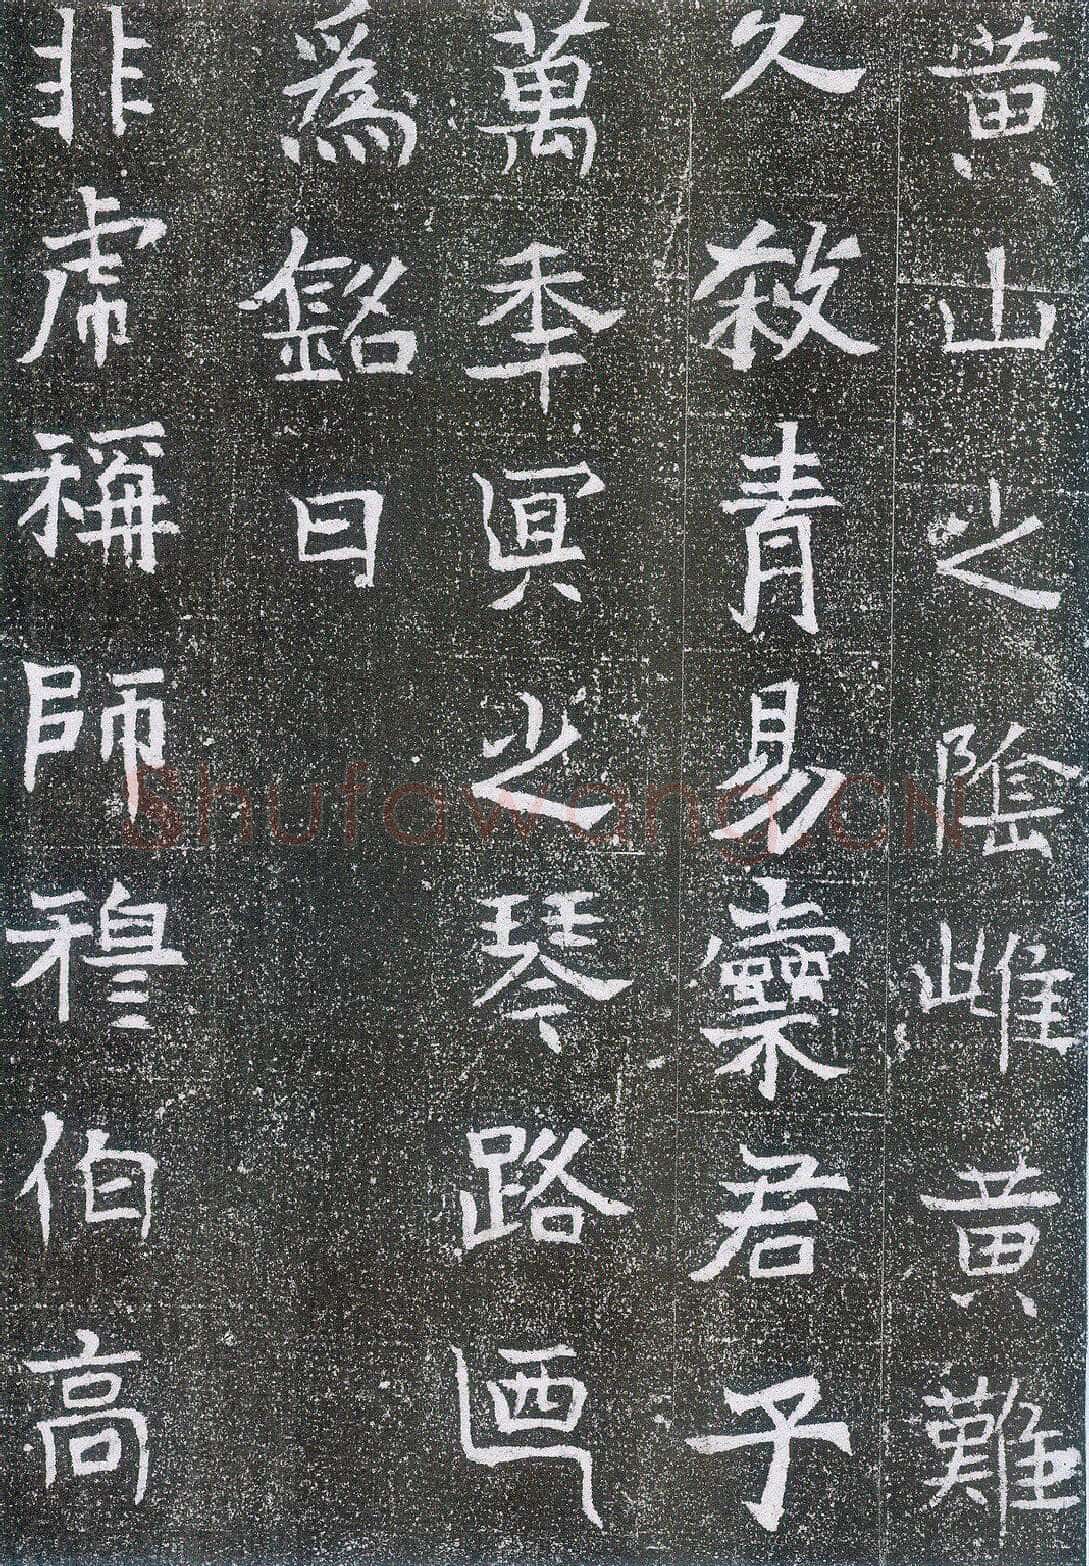 黄山之陰雌黄難
久殺青易蠹君子
萬秊之琴路
爲銘曰
非虎稱師穆伯高
Shufawang.CN